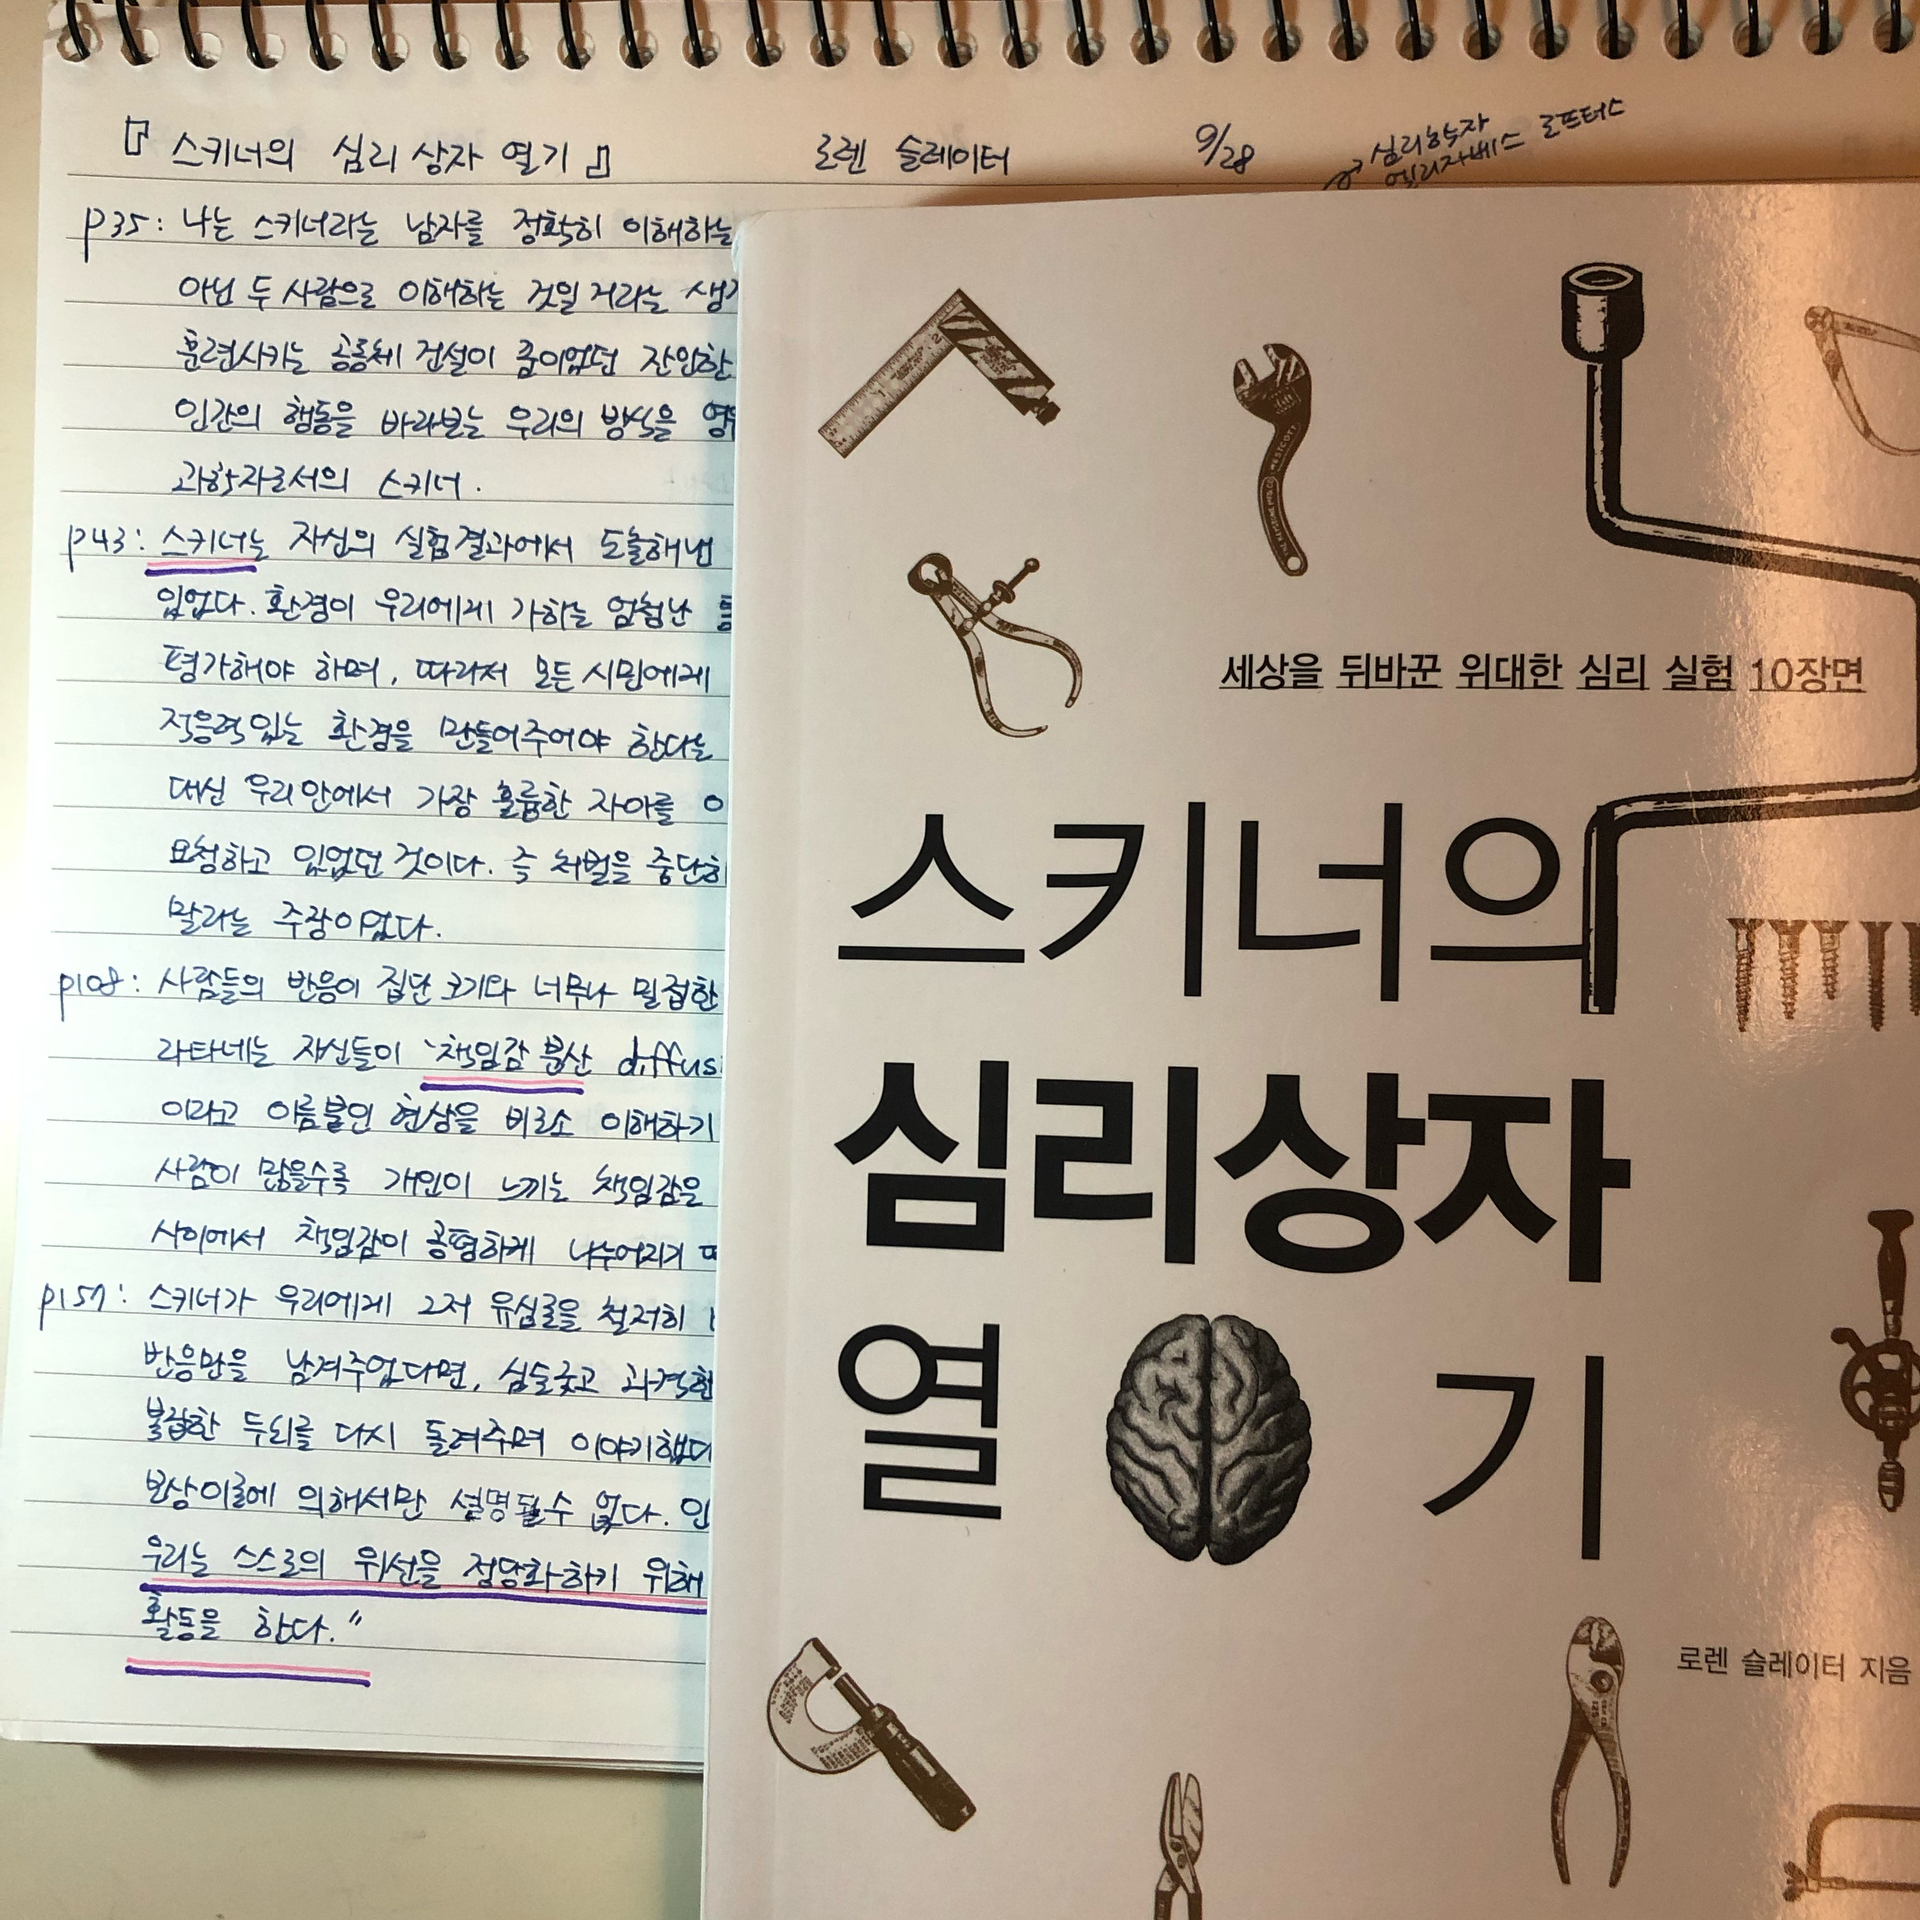 『스키너의 심리상자 열기』 로렌 슬레이터 9/28
심리학자
엘리자베스 로프터스
p35: 나는 스키너라는 남자를 정확히 이해하는
아닌 두 사람으로 이해하는 것일 거라는
훈련시키는 공동체 건설이 꿈이었던 잔인한
인간의 행동을 바라보는 우리의 방식을
과학자로서의 스키너.
p43: 스키너는 자신의 실험결과에서 도출해낸
있었다. 환경이 우리에게 가하는 엄청난
평가해야 하며, 따라서 모든 시민에게
적응력있는 환경을 만들어주어야 한다는
대신 우리 안에서 가장 훌륭한 자아를
요청하고 있었던 것이다. 즉 처벌을
말라는 주장이었다.
p108: 사람들의 반응이 집단 크기와 너무나 밀접한
라타네는 자신들이 '책임감 분산 diffus
이라고 이름붙인 현상을 비로소 이해하기
사람이 많을수록 개인이 느끼는 책임감은
사이에서 책임감이 공평하게 나누어지기
p157: 스키너가 우리에게 그저 유심론을 철저히
반응만을 남겨주었다면, 심술궂고 과격한
불합한 두뇌를 다시 돌려주며 이야기했다
보상이론에 의해서만 설명될수 없다.
우리는 스스로의 위선을 정당화하기 위해
활동을 한다."
WESTCOTT
세상을 뒤바꾼 위대한 심리 실험 10장면
스키너의
심리상자
열기
로렌 슬레이터 지음